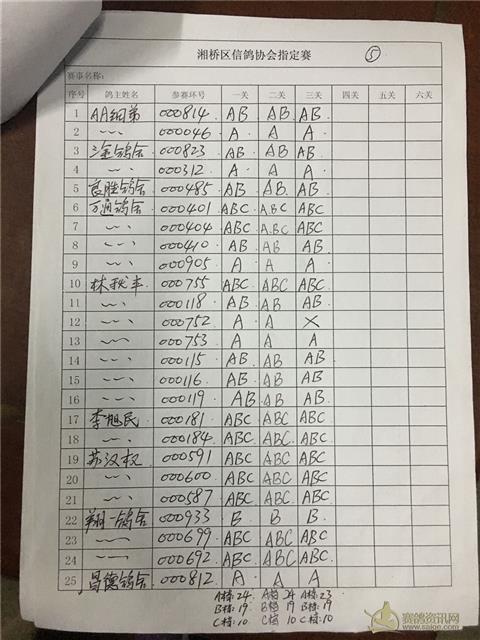 湘桥区信鸽协会指定赛 ⑤
赛事名称：
序号 鸽主姓名 参赛环号 一关 二关 三关 四关 五关 六关
1 AA细弟 000814 AB AB AB
2 ~~ 000046 A A A
3 淦鸽舍 000823 AB AB AB
4 ~~ 000312 A A A
5 良胜鸽舍 000485 AB AB AB
6 万通鸽舍 000401 ABC ABC ABC
7 ~~ 000404 ABC ABC ABC
8 ~~ 000410 AB AB AB
9 ~~ 000905 A A A
10 林秋丰 000755 ABC ABC ABC
11 ~~ 000118 AB AB AB
12 ~~ 000752 A A X
13 ~~ 000753 A A A
14 ~~ 000115 AB AB AB
15 ~~ 000116 AB AB AB
16 ~~ 000119 AB AB AB
17 李旭民 000181 ABC ABC ABC
18 ~~ 000184 ABC ABC ABC
19 苏汉权 000591 ABC ABC ABC
20 ~~ 000600 ABC ABC ABC
21 ~~ 000587 ABC ABC ABC
22 翔一鸽舍 000933 B B B
23 ~~ 000699 ABC ABC ABC
24 ~~ 000692 ABC ABC ABC
25 昌德鸽舍 000812 A A A
A档24 A档24 A档23
B档19 B档19 B档19
C档10 C档10 C档10
赛鸽资讯网
www.saige.com